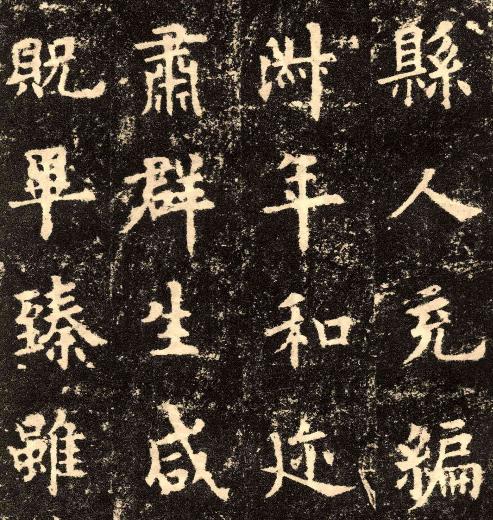 縣人充編
淑年和迩
肅群生咸
貺畢臻雖